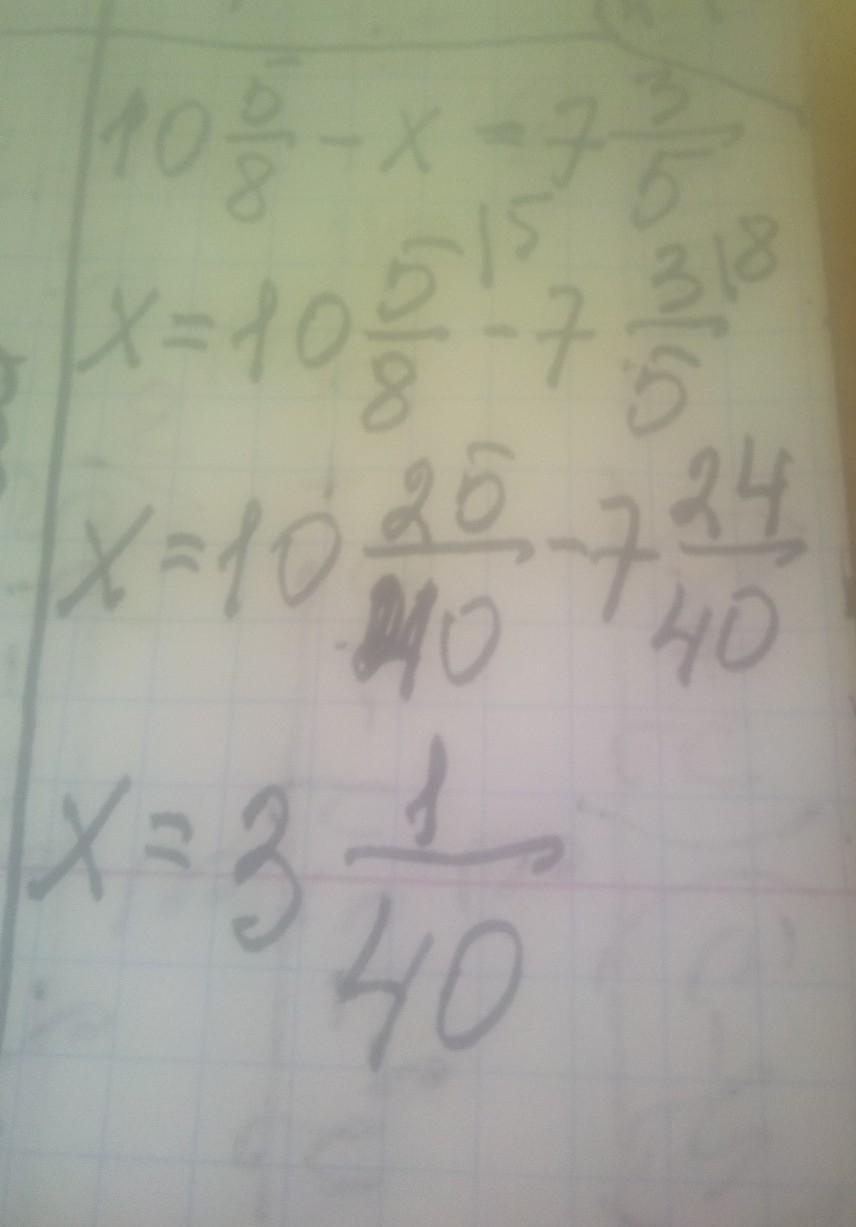 10 5/8 - x = 7 3/5
x = 10 5/8 |5 - 7 3/5 |8
x = 10 25/40 - 7 24/40
x = 3 1/40